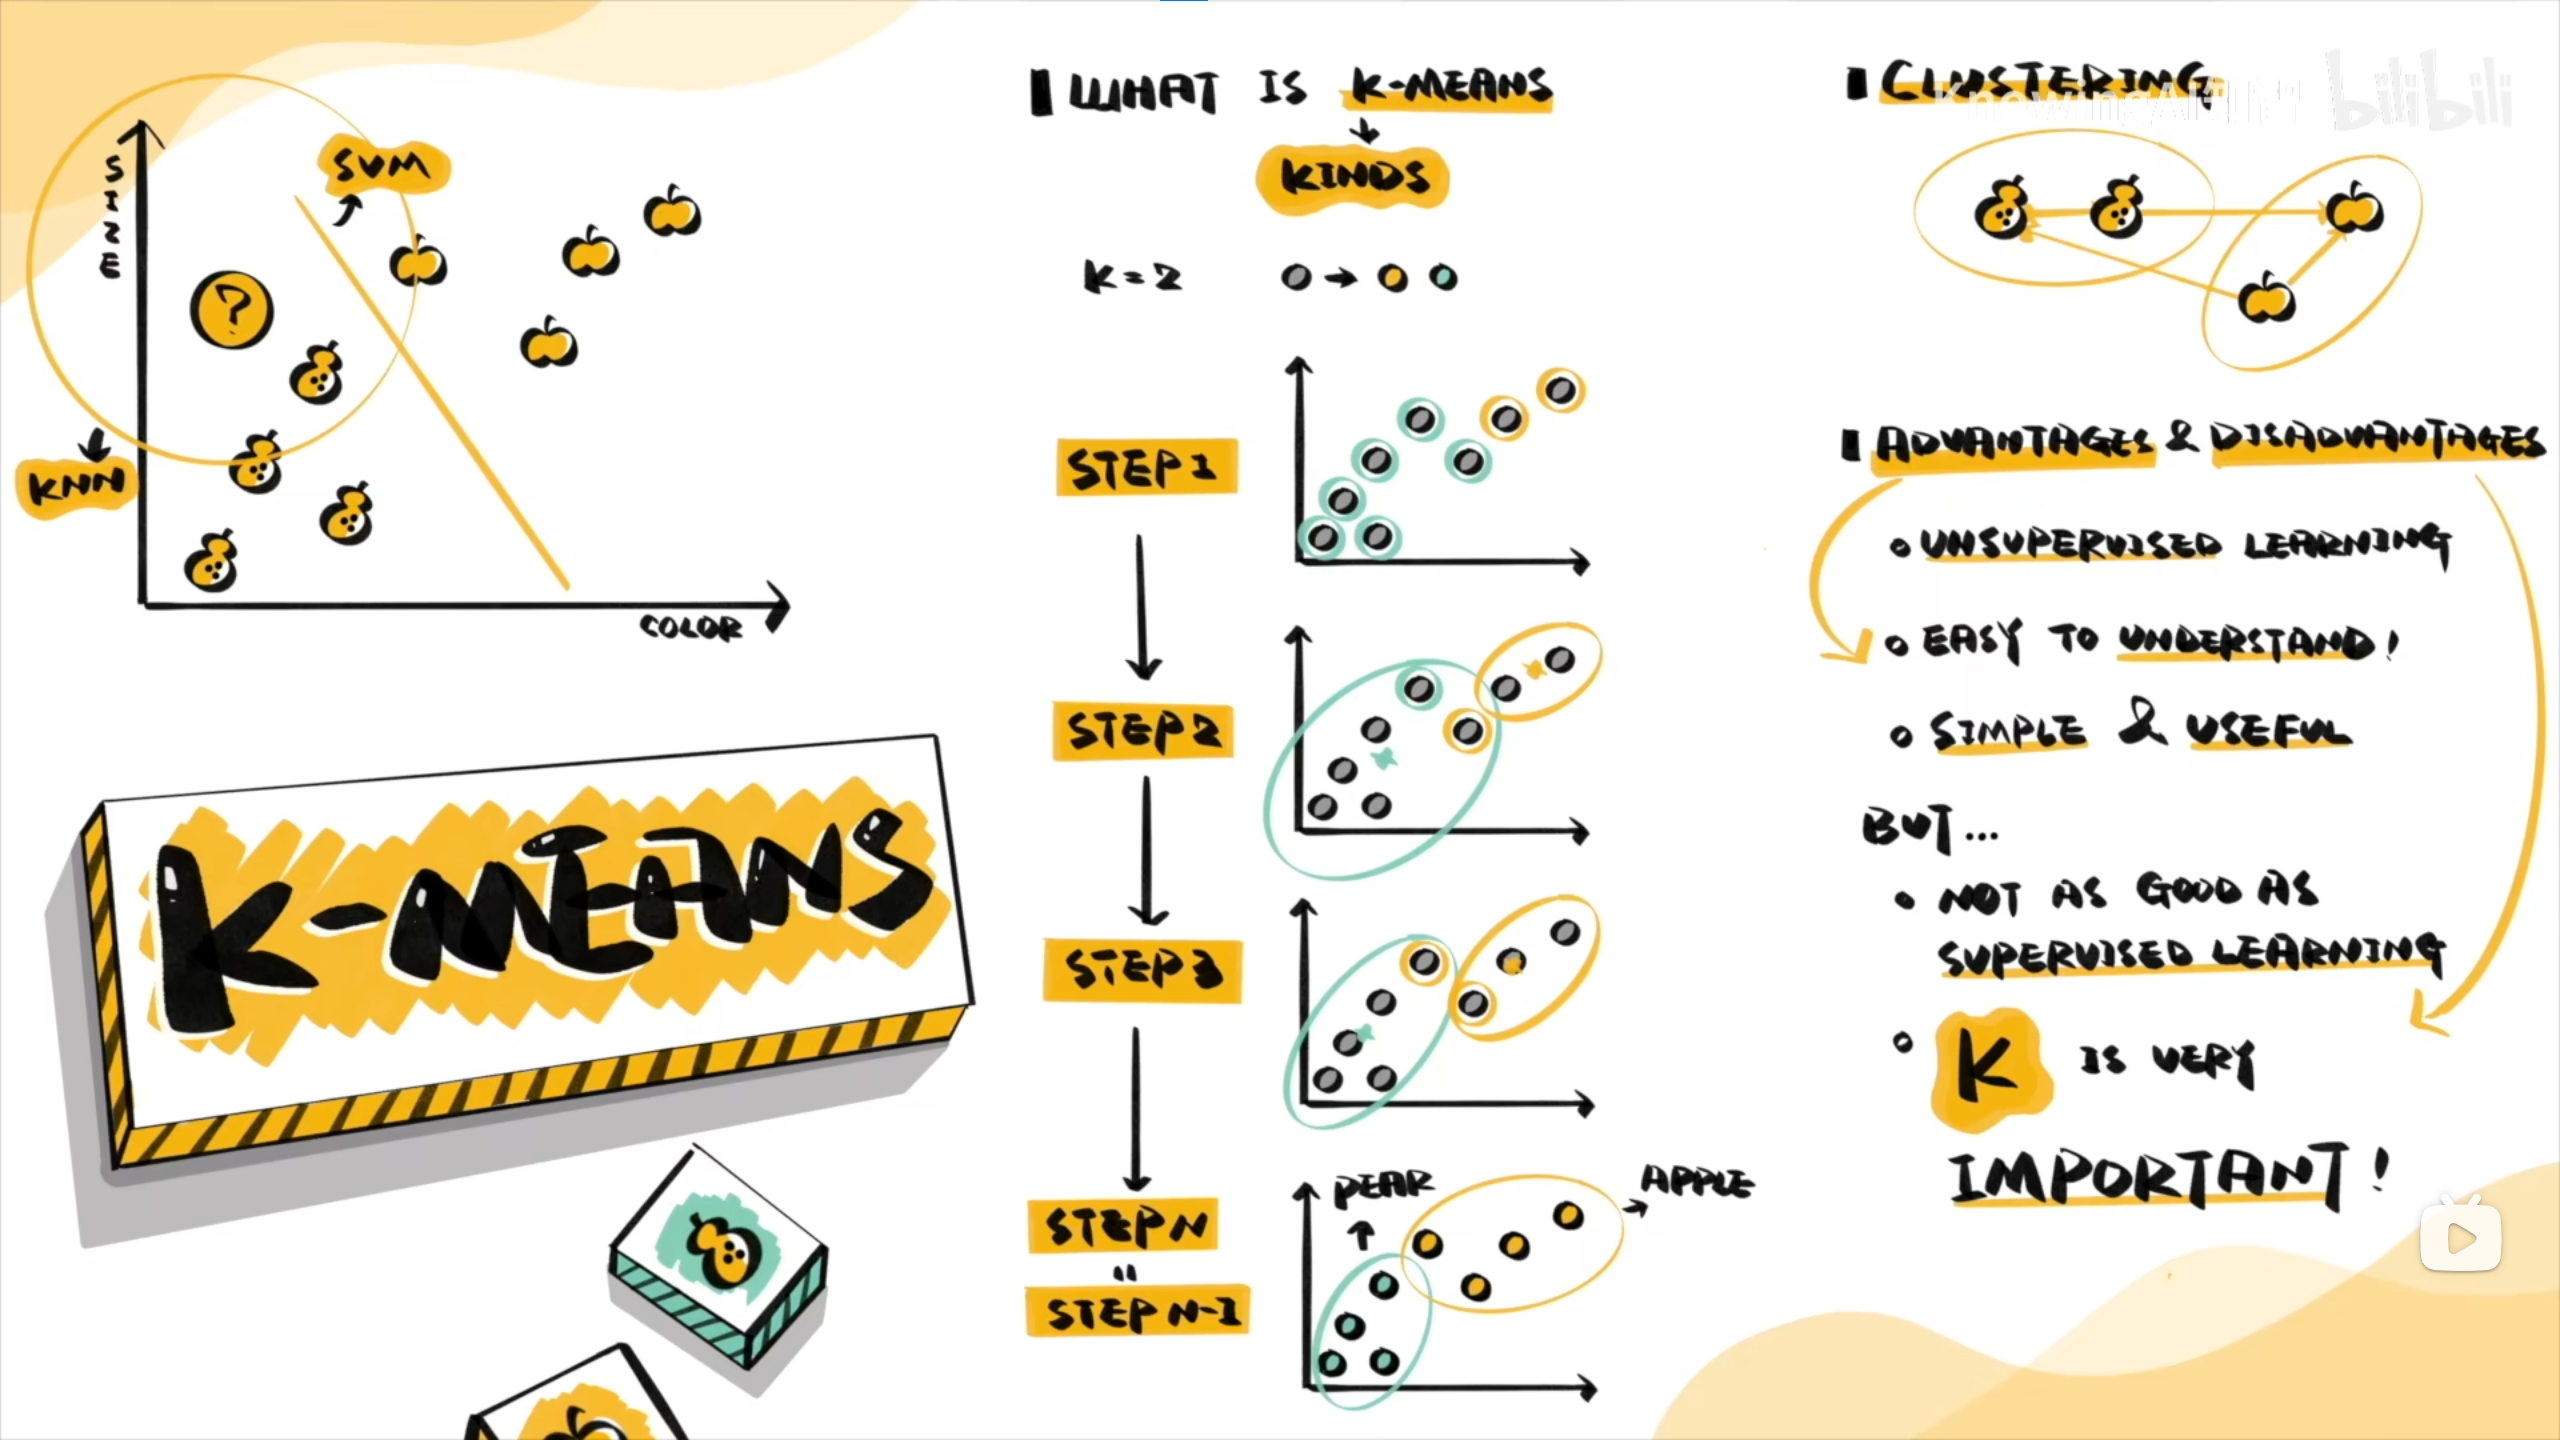 SIZE
SVM
?
KNN
COLOR
K-MEANS
WHAT IS K-MEANS
KINDS
K=2
STEP1
STEP2
STEP3
STEPN
=
STEPN-1
PEAR
APPLE
CLUSTERING
KnowingAI知智
bilibili
ADVANTAGES & DISADVANTAGES
UNSUPERVISED LEARNING
EASY TO UNDERSTAND!
SIMPLE & USEFUL
BUT...
NOT AS GOOD AS
SUPERVISED LEARNING
K IS VERY
IMPORTANT!